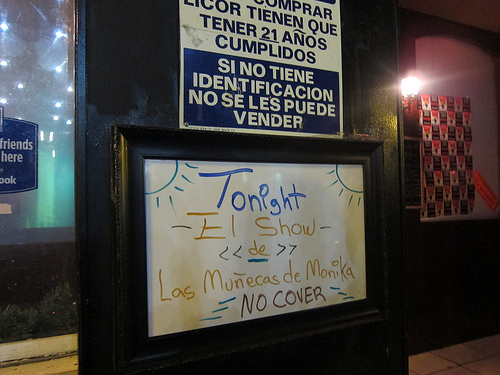 COMPRAR
LICOR TIENEN QUE
TENER 21 AÑOS
CUMPLIDOS
SI NO TIENE
IDENTIFICACION
NO SE LES PUEDE
VENDER
friends
here
ook
Tonight
- El Show -
<< de >>
Las Muñecas de Monika
NO COVER